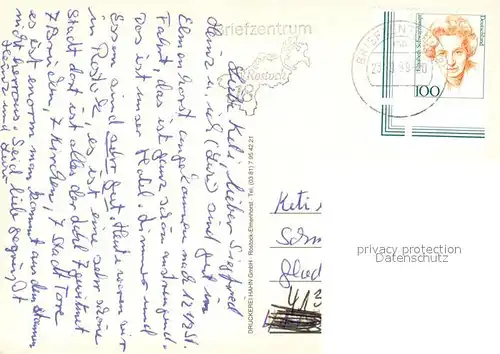 Liebe Keti, lieber Siegfried
Heinz u. ich (Lux) sind gut in
Elmenhorst angekommen nach 12 Std.
Fahrt, das ist ganz schön anstrengend.
Das ist unser Hotel. Zimmer und
Essen sind sehr gut. Heute waren wir
in Rostock, es ist eine sehr schöne
Stadt dort ist alles der Zahl 7 gewidmet
7 Brücken, 7 Kirchen, 7 Stadt Tore
es ist enorm man kommt aus dem Staunen
nicht heraus. Seid lieb gegrüßt
Heinz und
Briefzentrum
Rostock
18
DRUCKEREI HAHN GmbH · Rostock-Elmenhorst, Tel. (03 81) 7 95 42 21
BRIEFZENTRUM
Deutschland
Elisabeth Schwarzhaupt
100
Keti
413
privacy protection
Datenschutz